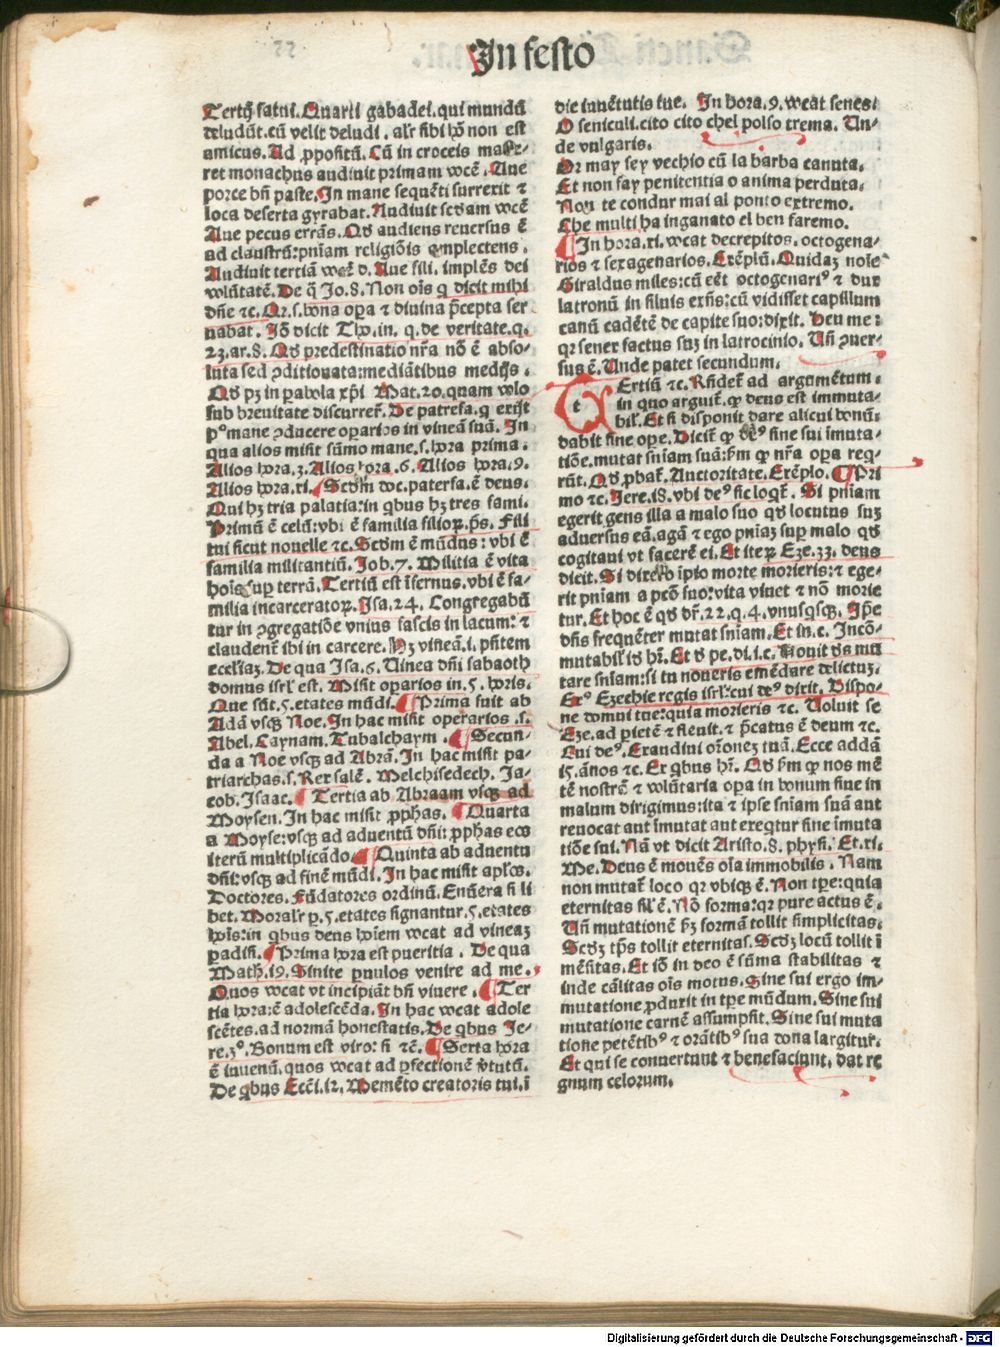 In festo
Tertij fatui. Quarti gabadei. qui mundū
deludūt. cū velit deludi. alr̄ sibi hō non est
amicus. Ad ꝓpositū. Cū in croceis maste-
ret monachus audiuit primam vocē. Aue
porce bn̄ paste. In mane sequēti surrexit ⁊
loca deserta gyrabat. Audiuit scḋam vocē
Aue pecus errās. Qḋ audiens reuersus ē
ad claustrū: pn̄iam religiōis ꝯmplectens.
Audiuit tertiā vocē ḋ. Aue fili. implēs dei
volūtatē. De q̄ Jo. 8. Non oīs q dicit mihi
dn̄e ⁊c. Qꝛ. s. bona oꝑa ⁊ diuina p̄cepta ser
uabat. Jō dicit Tho. in. q. de veritate. q.
23. ar. 8. Qḋ predestinatio nr̄a nō ē abso-
luta sed ꝯditionata: mediātibus medijs.
Qḋ pꝫ in ꝑabola xp̄i Mat. 20. quam volo
sub breuitate discurrer̄. De patrefa. q exijt
pͦ mane ꝯducere oꝑarios in vineā suā. In
qua alios misit sūmo mane. s. hora prima.
Alios hora. 3. Alios hora. 6. Alios hora. 9.
Alios hora. xi. Scḋm doc. paterfa. ē deus.
Qui hꝫ tria palatia: in qbus hꝫ tres fami.
Primū ē celū: vbi ē familia filioꝝ. p̄s. Fili
tui sicut nouelle ⁊c. Scḋm ē mūdus: vbi ē
familia militantiū. Job. 7. Militia ē vita
hoīs suꝑ terrā. Tertiū est īfernus. vbi ē fa-
milia incarceratoꝝ. Isa. 24. Congregabū
tur in ꝯgregatiōe vnius fascis in lacum: ⁊
claudent̄ ibi in carcere. Hꝫ vineā. i. pn̄tem
eccl̄iaꝫ. De qua Isa. 6. Vinea dn̄i sabaoth
domus isrl̄ est. Misit oꝑarios in. 5. horis.
Que sūt. 5. etates mūdi. ¶ Prima fuit ab
Adā vsqꝫ Noe. In hac misit operarios. s.
Abel. Caynam. Tubalchaym. ¶ Secun-
da a Noe vsqꝫ ad Abrā. In hac misit pa-
triarchas. s. Rex salē. Melchisedech. Ja-
cob. Isaac. ¶ Tertia ab Abraam vsqꝫ ad
Moysen. In hac misit ꝓph̄as. ¶ Quarta
a Moyse: vsqꝫ ad aduentū dn̄i: ꝓph̄as eos
iterū multiplicādo. ¶ Quinta ab aduentu
dn̄i: vsqꝫ ad finē mūdi. In hac misit apl̄os.
Doctores. Fūdatores ordinū. Enūera si li
bet. Moralr̄ ꝑ. 5. etates signantur. 5. etates
hoīs: in qbus deus hoīem vocat ad vineaꝫ
ꝑadisi. ¶ Prima hora est pueritia. De qua
Math̄. 19. Sinite ꝑuulos venire ad me.
Quos vocat vt incipiāt bn̄ viuere. ¶ Ter
tia hora: ē adolescēda. In hac vocat adole
scētes. ad normā honestatis. De qbus Je-
re. 3ͦ. Bonum est viro: si ⁊c̄. ¶ Sexta hora
ē iuuenū. quos vocat ad ꝑfectionē v̄tutū.
De qbus Ecci. 12. Memēto creatoris tui. ī
die iuuētutis tue. In hora. 9. vocat senes:
O seniculi. cito cito chel polso trema. Un-
de vulgaris.
Or may sey vechio cū la barba canuta.
Et non fay penitentia o anima perduta.
Non te condur mai al ponto extremo.
Che multi ha inganato el ben faremo.
¶ In hora. xi. vocat decrepitos. octogena-
rios ⁊ sexagenarios. Exēplū. Quidaꝫ noīe
Giraldus miles: cū eēt octogenariꝰ ⁊ dux
latronū in siluis exn̄s: cū vidisset capillum
canū cadētē de capite suo: dixit. Heu me:
qꝛ senex factus suꝫ in latrocinio. Un̄ ꝯuer-
sus ē. Unde patet secundum.
Tertiū ⁊c. Rn̄det̄ ad argumētum:
in quo arguit̄. ꝙ deus est immuta-
bil̄. Et si disponit dare alicui bonū:
dabit sine ope. Dicit̄ ꝙ deꝰ sine sui īmuta-
tiōe. mutat sniam suā: ẜm ꝙ nr̄a oꝑa req-
rūt. Qḋ ꝓbat̄. Auctoritate. Exēplo. ¶ Pri
mo ⁊c. Jere. 18. vbi deꝰ sic loqt̄. Si pniam
egerit gens illa a malo suo qḋ locutus suꝫ
aduersus eā. agā ⁊ ego pniaꝫ suꝑ malo qḋ
cogitaui vt facerē ei. Et iteꝝ Eze. 33. deus
dicit. Si dixero īpio morte morieris: ⁊ ege-
rit pniam a pcō suo: vita viuet ⁊ nō morie
tur. Et hoc ē qḋ dr̄. 22. q. 4. vnusqsqꝫ. Ip̄e
dn̄s frequēter mutat sniam. Et in. c. Incō-
mutabil̄ is hr̄. Et ḋ pe. di. i. c. Nouit dn̄s mu
tare sniam: si tu noueris emēdare delictuꝫ.
Exꝰ Ezechie regis isrl̄: cui deꝰ dixit. Dispo-
ne domui tue: quia morieris ⁊c. Voluit se
Eze. ad pietē ⁊ fleuit. ⁊ p̄catus ē deum ⁊c.
Cui deꝰ. Exaudiui oōnez tuā. Ecce addā
15. ānos ⁊c. Ex qbus hr̄. Qḋ ẜm ꝙ nos mē
tē nostrē ⁊ volūtaria oꝑa in bonum siue in
malum dirigimus: ita ⁊ ipse sniam suā aut
reuocat aut īmutat aut exeqtur sine īmuta
tiōe sui. Nā vt dicit Aristo. 8. physi. Et. xi.
Me. Deus ē mouēs oīa immobilis. Nam
non mutat̄ loco qꝛ vbiqꝫ ē. Non tꝑe: quia
eternitas sil̄ ē. Nō forma: qꝛ pure actus ē.
Un̄ mutationē ẜꝫ formā tollit simplicitas.
Scḋꝫ tꝑs tollit eternitas. Scḋꝫ locū tollit ī
mēsitas. Et iō in deo ē sūma stabilitas ⁊
inde cālitas oīs motus. Sine sui ergo im-
mutatione ꝓduxit in tꝑe mūdum. Sine sui
mutatione carnē assumpsit. Sine sui muta
tione petētibꝰ ⁊ orātibꝰ sua dona largitur.
Et qui se conuertunt ⁊ benefaciunt, dat re
gnum celorum.
Digitalisierung gefördert durch die Deutsche Forschungsgemeinschaft - DFG